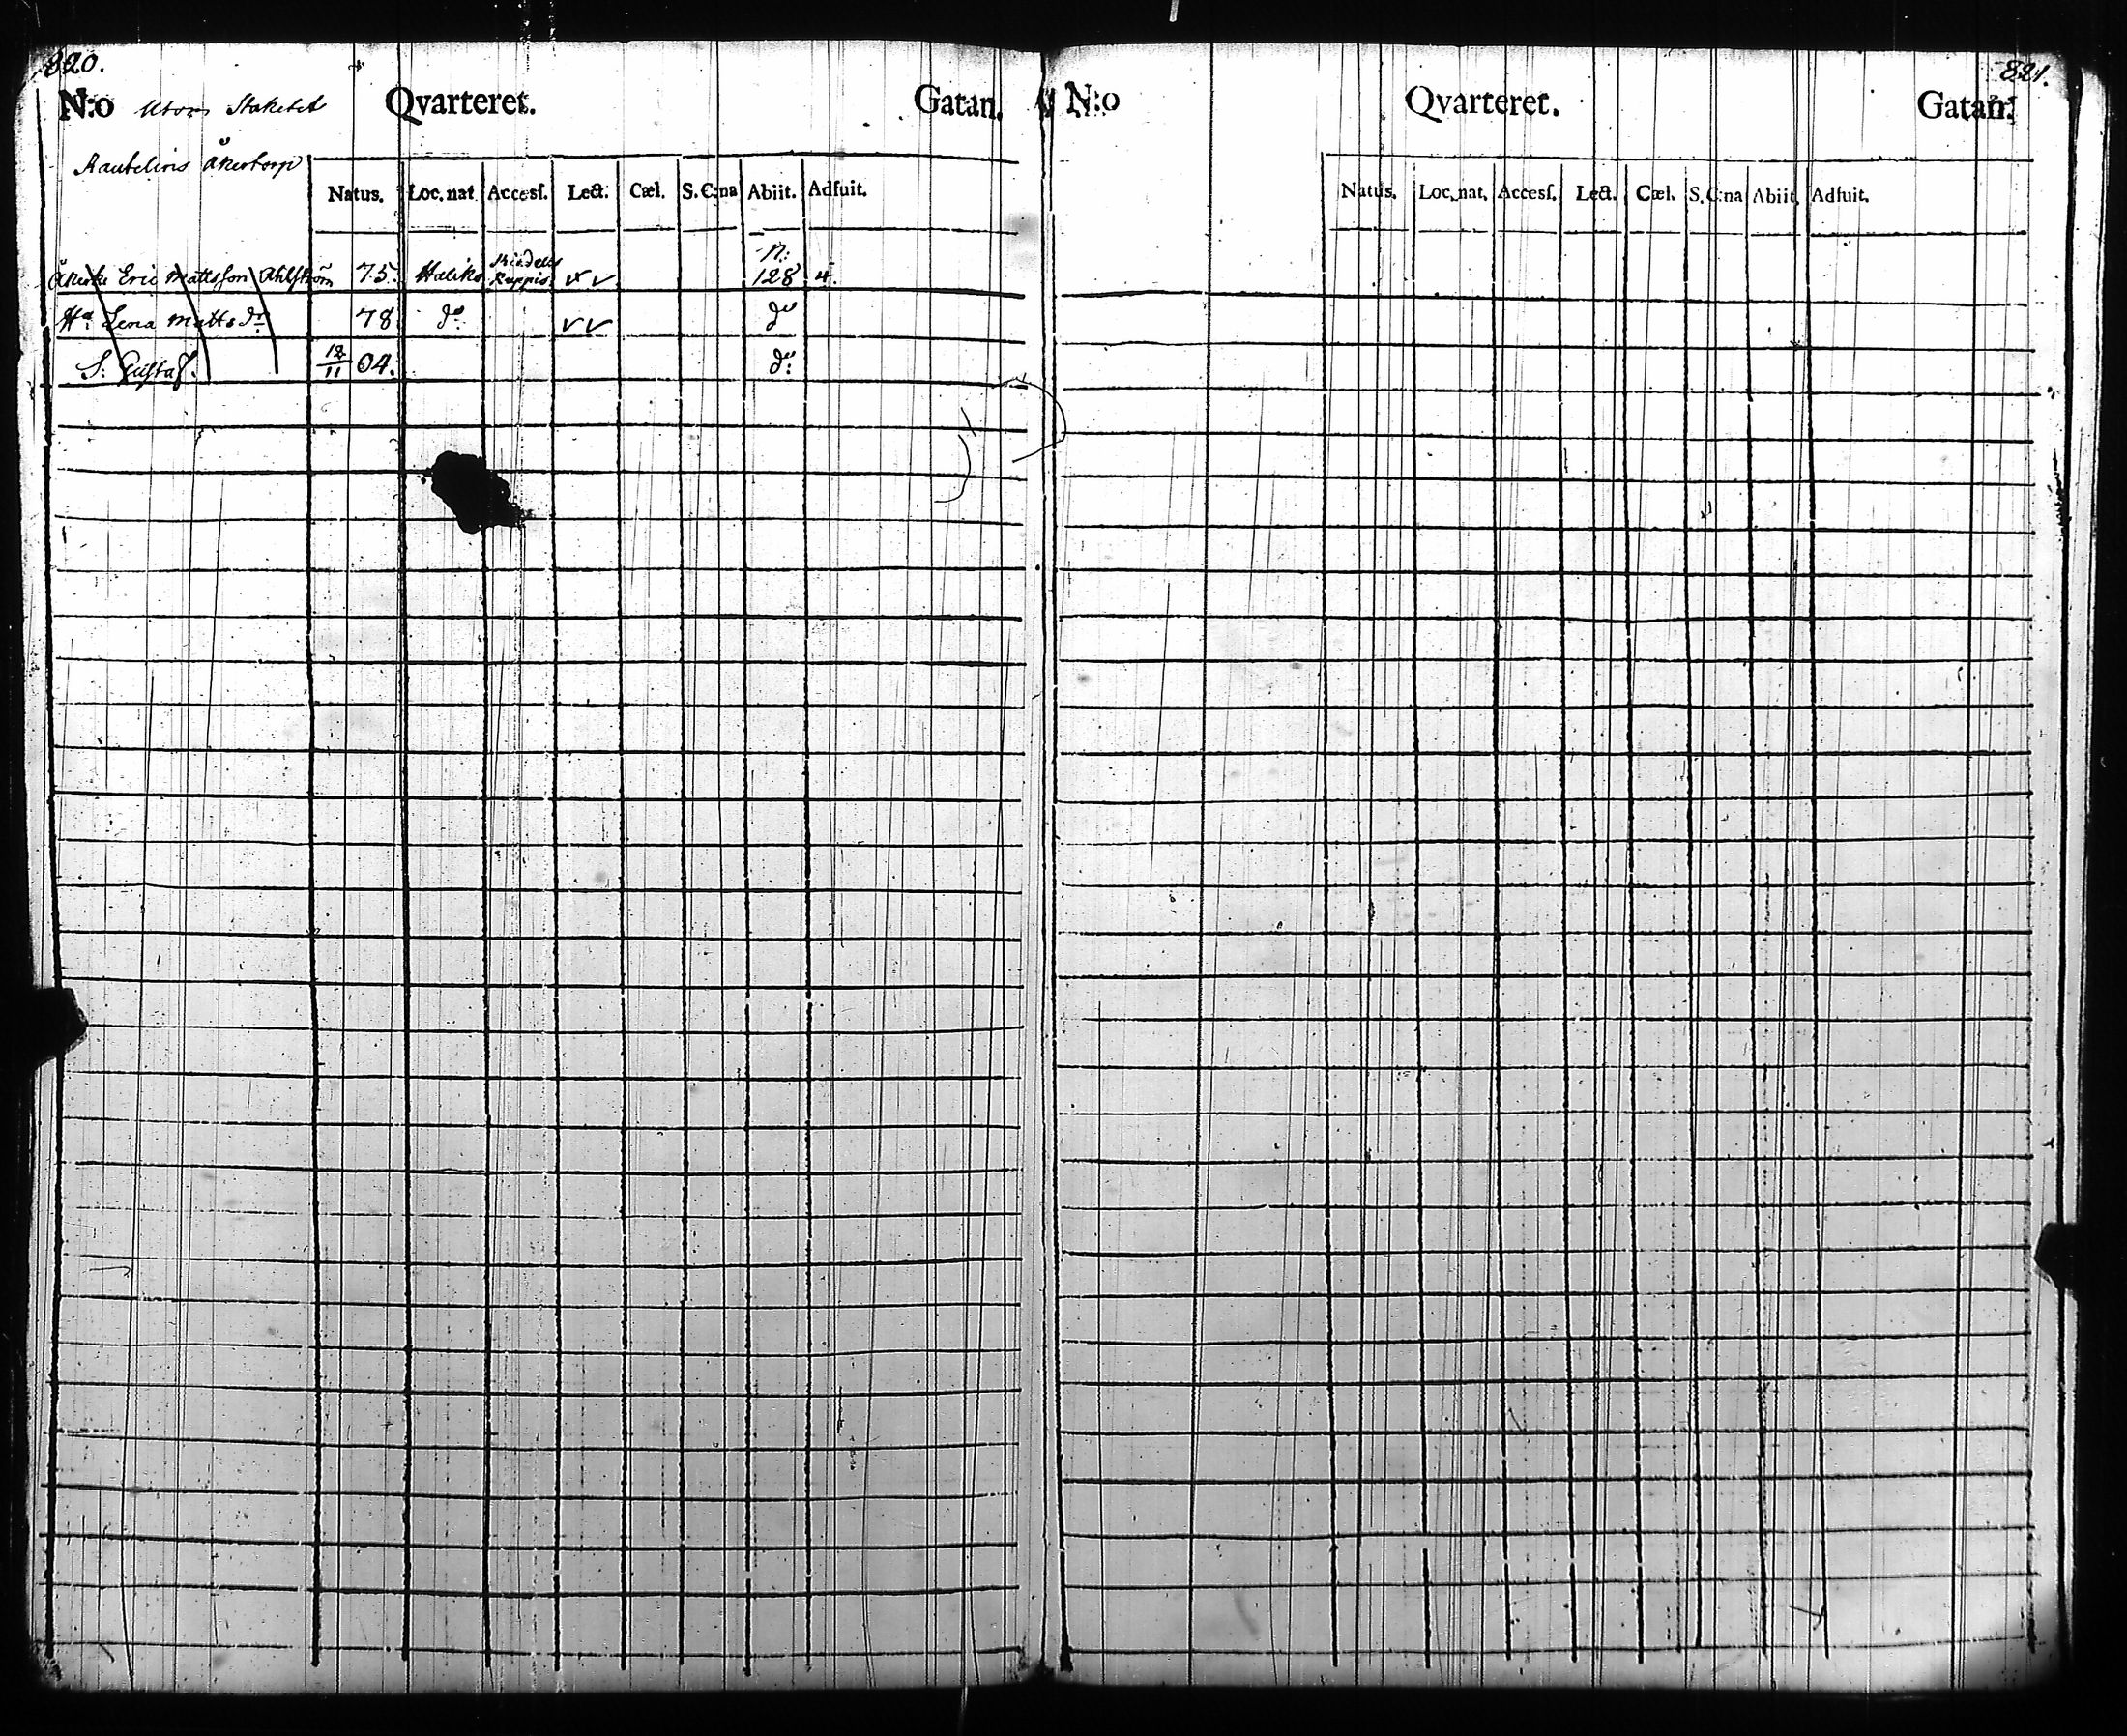 820.
N:o Utom Staketet Qvarteret. Gatan.
Åkertorp
Natus. Loc. nat. Accesſ. Lect. Cæl. S. C:na Abiit. Adfuit.
N:
Eric Mattsſon Ahlſtröm 75. Haliko 128 4.
H:a Lena Mattsd:r 78 d:o d:o
S. Guſtaf. 12/11 04. d:o
821.
N:o Qvarteret. Gatan.
Natus. Loc. nat. Accesſ. Lect. Cæl. S. C:na Abiit. Adfuit.